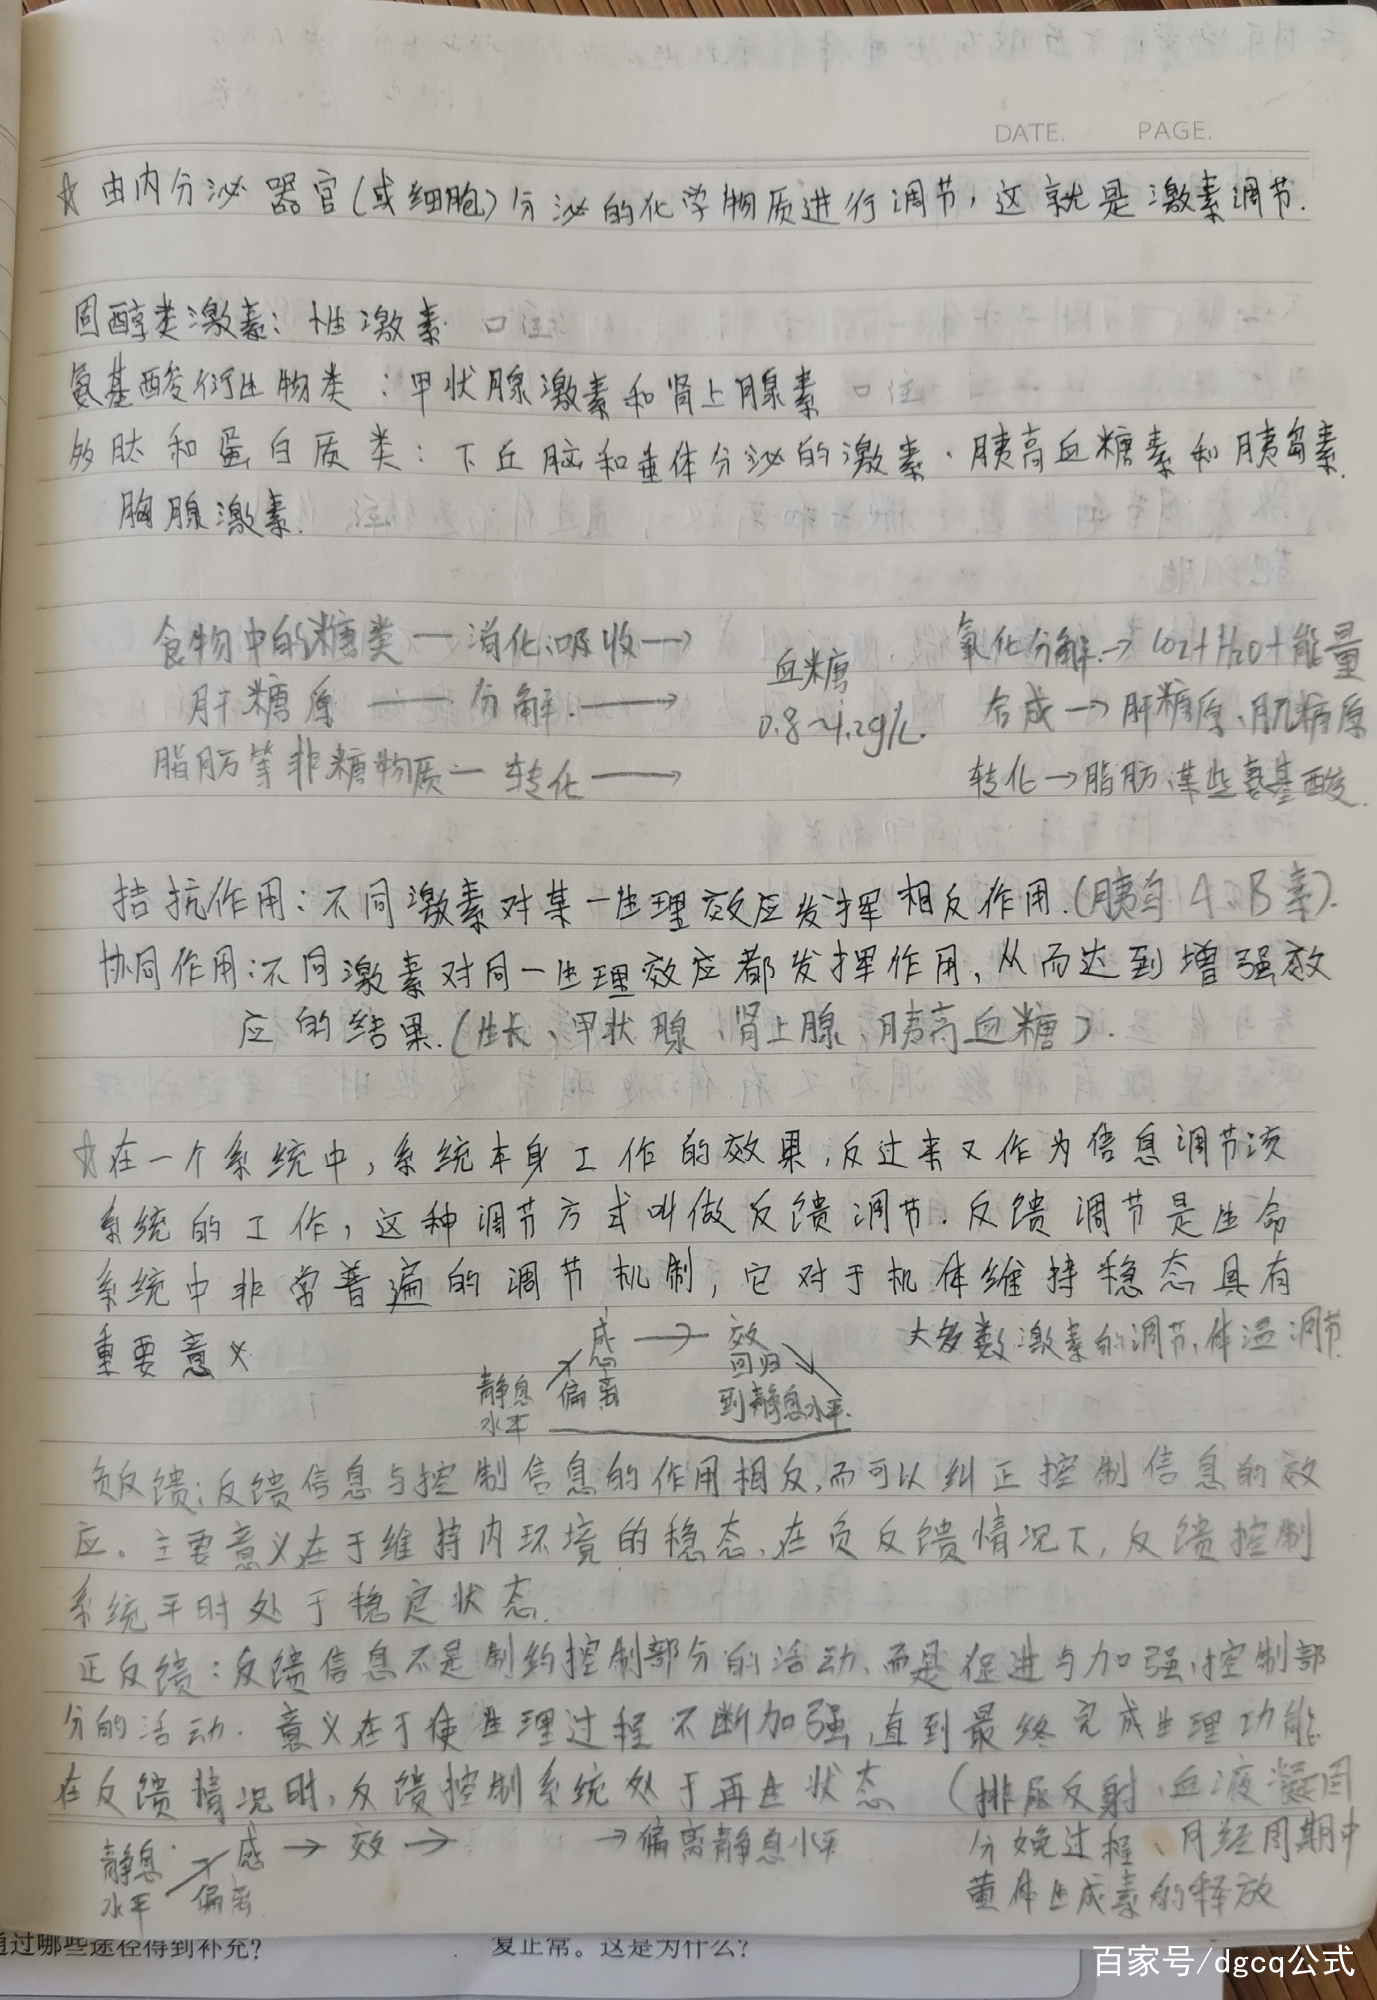 DATE. PAGE.
☆ 由内分泌器官(或细胞)分泌的化学物质进行调节,这就是激素调节.
固醇类激素:性激素 口注
氨基酸衍生物类:甲状腺激素和肾上腺素 口注
多肽和蛋白质类:下丘脑和垂体分泌的激素、胰高血糖素和胰岛素.
胸腺激素.
食物中的糖类—消化、吸收→ 血糖 氧化分解→CO2+H2O+能量
肝糖原——分解.——→ 0.8~1.2g/L. 合成→肝糖原、肌糖原
脂肪等非糖物质—转化——→ 转化→脂肪、某些氨基酸.
拮抗作用:不同激素对某一生理效应发挥相反作用.(胰岛A.B素).
协同作用:不同激素对同一生理效应都发挥作用,从而达到增强效
应的结果.(生长、甲状腺、肾上腺、胰高血糖).
☆在一个系统中,系统本身工作的效果,反过来又作为信息调节该
系统的工作,这种调节方式叫做反馈调节.反馈调节是生命
系统中非常普遍的调节机制,它对于机体维持稳态具有
重要意义 感→效 大多数激素的调节、体温调节
静息 偏离 回归
水平 到静息水平.
负反馈:反馈信息与控制信息的作用相反,而可以纠正控制信息的效
应。主要意义在于维持内环境的稳态,在负反馈情况下,反馈控制
系统平时处于稳定状态.
正反馈:反馈信息不是制约控制部分的活动、而是促进与加强控制部
分的活动.意义在于使生理过程不断加强,直到最终完成生理功能
在反馈情况时,反馈控制系统处于再生状态 (排尿反射、血液凝固
静息 感→效→ →偏离静息水平 分娩过程、月经周期中
水平 偏离 黄体生成素的释放
通过哪些途径得到补充? 复正常。这是为什么?
百家号/dgcq公式